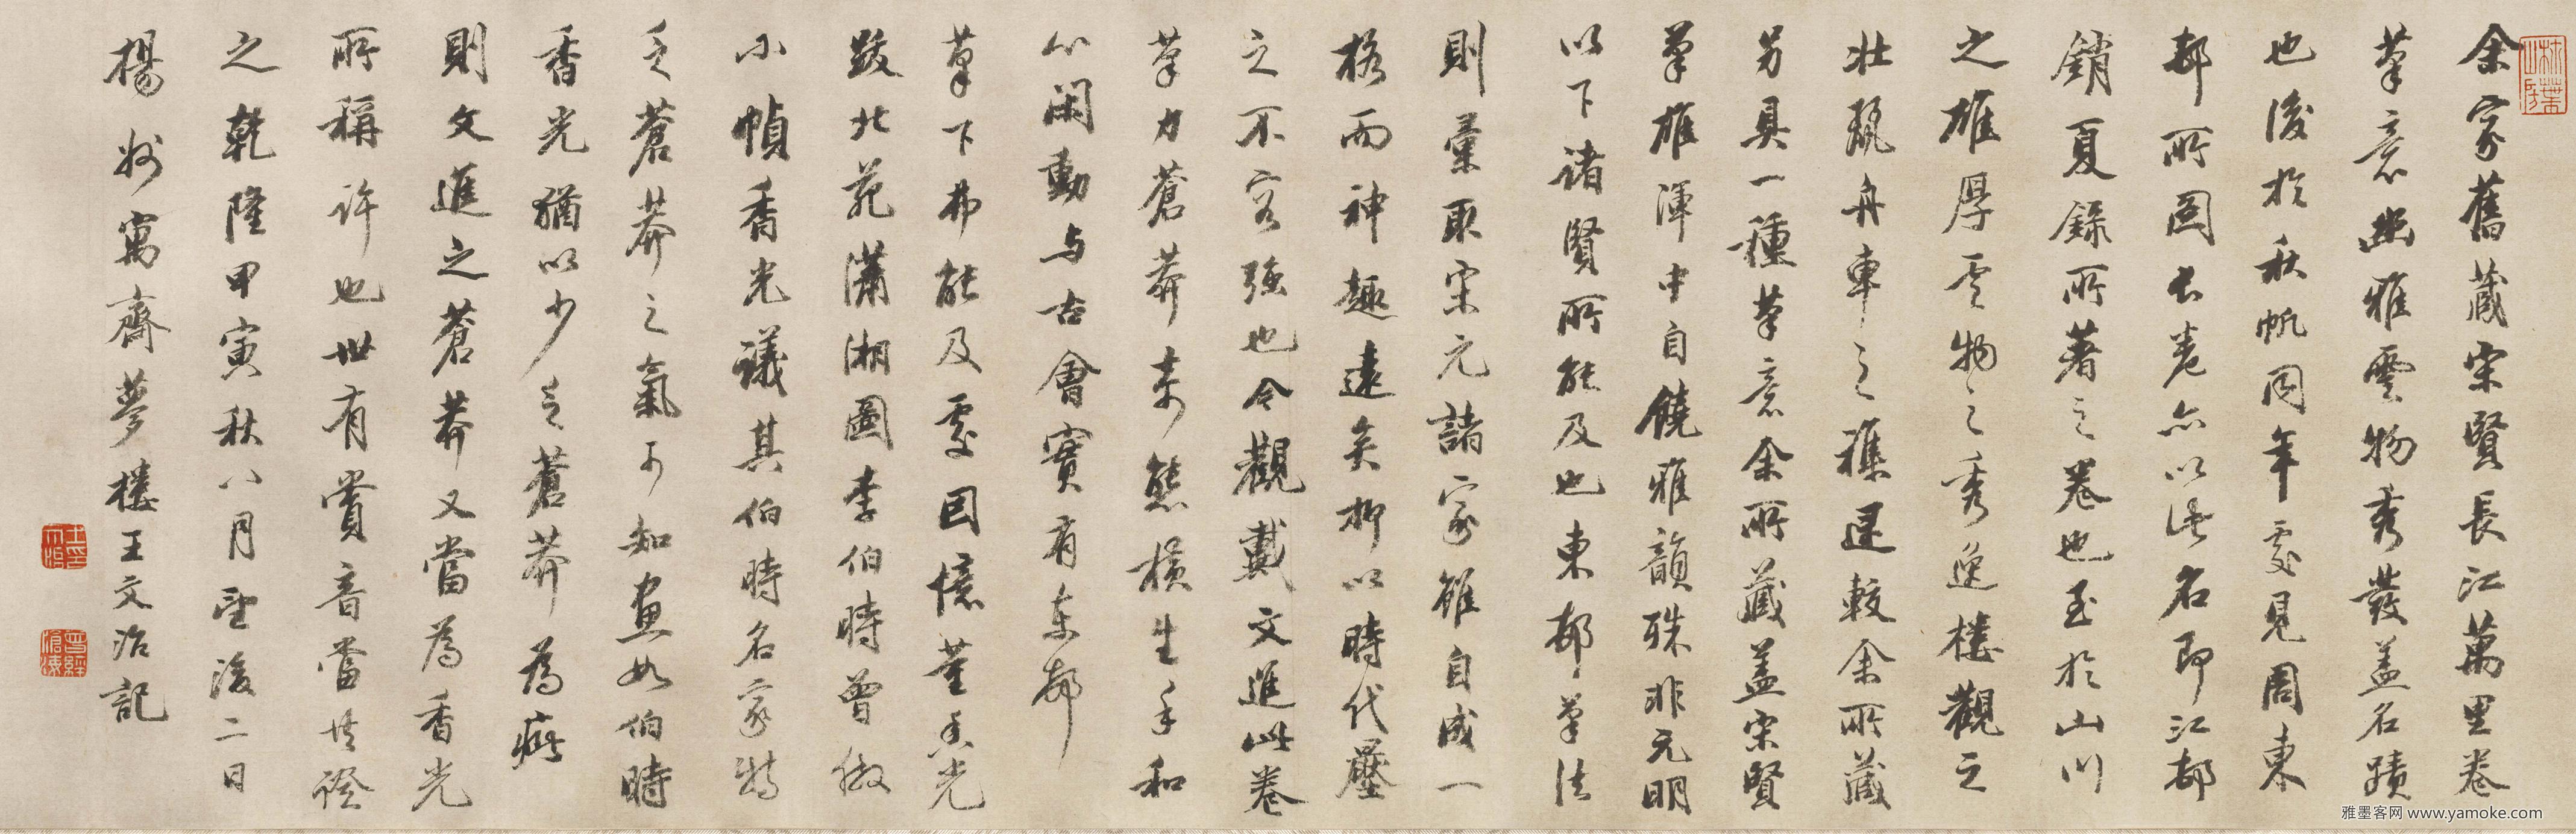 余家舊藏宋賢長江萬里卷
筆意幽雅雲物秀發蓋名蹟
也後於秋帆同年處見周東
邨所圖大卷亦以此名即江邨
銷夏錄所著之卷也至於山川
之雄厚雲物之秀逸樓觀之
壯麗舟車之穠遝較余所藏
另具一種筆意余所藏蓋宋賢
筆雄渾中自饒雅韻殊非元明
以下諸賢所能及也東邨筆法
則彙取宋元諸家雖自成一
格而神趣遠矣抑以時代壓
之不容強也今觀戴文進此卷
筆力蒼莽奇態橫生手和
心閑動與古會實有東邨
筆下弗能及處因憶董香光
跋北苑瀟湘圖李伯時曾倣
小幀香光議其伯時名家特
乏蒼莽之氣可知畫如伯時
香光猶以少乏蒼莽為病
則文進之蒼莽又當為香光
所稱許也世有賞音當共證
之乾隆甲寅秋八月望後二日
楊州寓齋夢樓王文治記
雅墨客网 www.yamoke.com